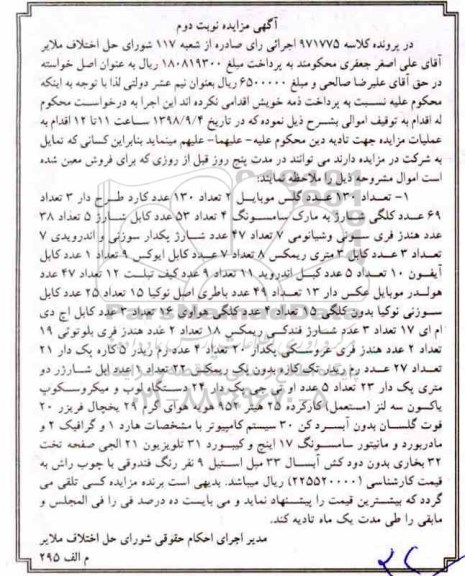 آگهی مزایده نوبت دوم
در پرونده کلاسه ۹۷۱۷۷۵ اجرائی رای صادره از شعبه ۱۱۷ شورای حل اختلاف ملایر
آقای علی اصغر جعفری محکومند به پرداخت مبلغ ۱۸۰۸۱۹۳۰۰ ریال به عنوان اصل خواسته
در حق آقای علیرضا صالحی و مبلغ ۶۵۰۰۰۰۰ ریال بعنوان نیم عشر دولتی لذا با توجه به اینکه
محکوم علیه نسبت به پرداخت ذمه خویش اقدامی نکرده اند این اجرا به درخواست محکوم
له اقدام به توقیف اموالی بشرح ذیل نموده که در تاریخ ۱۳۹۸/۹/۴ ساعت ۱۱ تا ۱۲ اقدام به
عملیات مزایده جهت تادیه دین محکوم علیه- علیهما- علیهم مینماید بنابراین کسانی که تمایل
به شرکت در مزایده دارند می توانند در مدت پنج روز قبل از روزی که برای فروش معین شده
است اموال مشروحه ذیل را ملاحظه نمایند:
۱- تعداد ۱۳۰ عدد گلس موبایل ۲ تعداد ۱۳۰ عدد کارد طرح دار ۳ تعداد
۶۹ عدد کلگی شارژ به مارک سامسونگ ۴ تعداد ۵۳ عدد کابل شارژ ۵ تعداد ۳۸
عدد هندز فری سونی وشیائومی ۷ تعداد ۴۷ عدد شارژ یکدار سوزنی و اندرویدی ۷
تعداد ۳ عدد کابل ۲ متری ریمکس ۸ تعداد ۷ عدد کابل ایوکس ۹ تعداد ۱ عدد کابل
آیفون ۱۰ تعداد ۵ عدد کیبل اندروید ۱۱ تعداد ۹ عدد کیف تبلت ۱۲ تعداد ۴۷ عدد
هولدر موبایل عکس دار ۱۳ تعداد ۴۹ عدد باطری اصل نوکیا ۱۵ تعداد ۲۵ عدد کابل
سوزنی نوکیا بدون کلگی ۱۵ تعداد ۴ عدد کلگی هواوی ۱۶ تعداد ۳ عدد کابل اچ دی
ام ای ۱۷ تعداد ۳ عدد شارژ فندکی ریمکس ۱۸ تعداد ۲ عدد هندز فری بلوتوثی ۱۹
تعداد ۲ عدد هندز فری عروسکی یکدار ۲۰ تعداد ۲ عدد رم ریدر ۵ کاره یک دار ۲۱
تعداد ۲۷ عدد رم ریدر تک کاره بدون پک ریمکس ۲۲ تعداد ۱ عدد اپل شارژر دو
متری پک دار ۲۳ تعداد ۵ عدد او تی جی پک دار ۲۴ دستگاه لوپ و میکروسکوپ
یاکسون سه لنز (مستعمل) کارکرده ۲۵ هیتر ۹۵۲ هویه هوای گرم ۲۹ یخچال فریزر ۲۰
فوت گلسان بدون آبسرد کن ۳۰ سیستم کامپیوتر با مشخصات هارد ۱ و گرافیک ۲ و
مادربورد و مانیتور سامسونگ ۱۷ اینچ و کیبورد ۳۱ تلویزیون ۲۱ الجی صفحه تخت
۳۲ بخاری بدون دود کش آبسال ۳۳ مبل استیل ۹ نفر رنگ فندوقی با چوب راش به
قیمت کارشناسی (۲۲۵۵۲۰۰۰۰) ریال میباشد. بدیهی است برنده مزایده کسی تلقی می
گردد که بیشترین قیمت را پیشنهاد نماید و می بایست ده درصد فی را فی المجلس و
مابقی را طی مدت یک ماه تادیه کند.
مدیر اجرای احکام حقوقی شورای حل اختلاف ملایر
م الف ۲۹۵